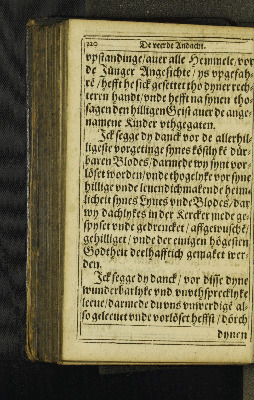 220 De veerde Andacht.
vpstandinge/auer alle Hemmele/vor
de Jünger Angesichte/ys vpgefah-
rē/hefft he sick gesettet tho dyner rech-
teren handt/vnde hefft na synen tho-
sagen den hilligen Geist auer de ange-
namene Kinder vthgegaten.
Jck segge dy danck vor de allerhil-
ligeste vorgetinge synes kösilykē dür-
baren Blodes/darmede wy synt vor-
löset worden/vnde thogelyke vor syne
hillige vnde leuendichmakende heim-
licheit synes Lyues vnde Blodes/dar
wy dachlykes in der Kercker mede ge-
spyset vnde gedrencket/affgewuschē/
gehilliget/vnde der einigen högesten
Godtheit deelhafftich gemaket wer-
den.
Jck segge dy danck/vor disse dyne
wunderbarlyke vnd vnvthsprecklyke
leeue/darmede du vns vnwerdigē al-
so geleeuet vnde vorlöset heffst/dörch
dynen